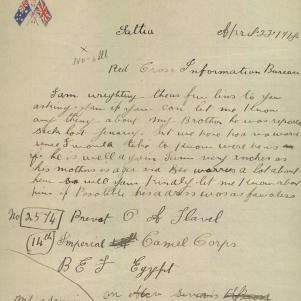 Saltia April 23rd 1918
Red Cross Information Bureau
I am wrighting theas few lines to you
asking you if you can let me know
any thing about my Brother he was reported
sick last January but we have had no word
since I would like to know were he is
if he is well again I am very ancious as
his mother is aged and she worries a lot about
you will you kindly let me know about
him if Possible his address was as follows
No 2574 Privat O A Flavel
14th Imperial Camel Corps
B E F Egypt
on